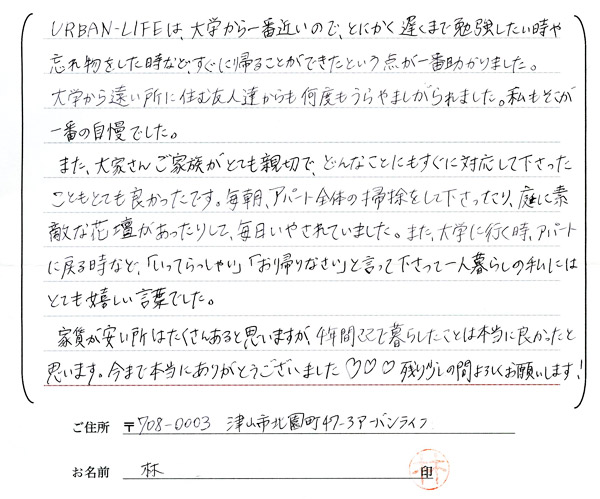 URBAN-LIFEは、大学から一番近いので、とにかく遅くまで勉強したい時や
忘れ物をした時など、すぐに帰ることができたという点が一番助かりました。
大学から遠い所に住む友人達からも何度もうらやましがられました。私もそこが
一番の自慢でした。
また、大家さんご家族がとても親切で、どんなことにもすぐに対応して下さった
こともとても良かったです。毎朝、アパート全体の掃除をして下さったり、庭に素
敵な花壇があったりして、毎日いやされていました。また、大学に行く時、アパート
に戻る時など、「いってらっしゃい」「お帰りなさい」と言って下さって一人暮らしの私には
とても嬉しい言葉でした。
家賃が安い所はたくさんあると思いますが、4年間ここで暮らしたことは本当に良かったと
思います。今まで本当にありがとうございました♡♡♡ 残り少しの間よろしくお願いします!
ご住所 〒708-0003 津山市北園町47-3アーバンライフ
お名前 林 印